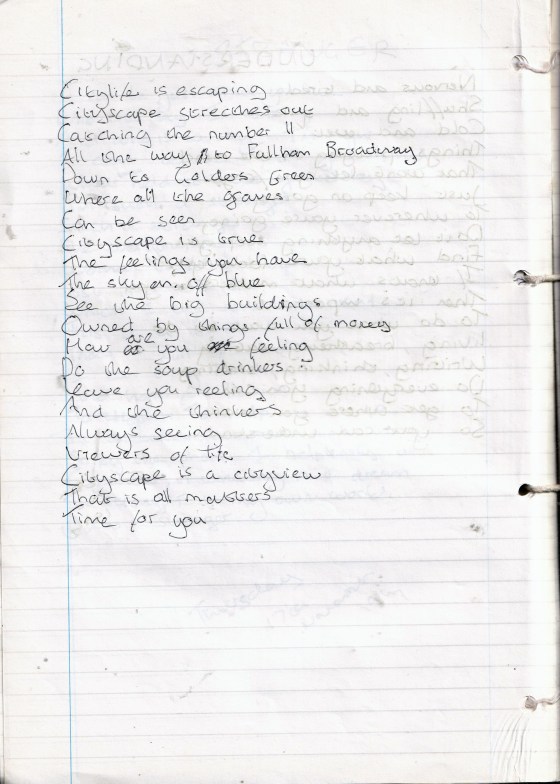 Citylife is escaping
Cityscape stretches out
Catching the number 11
All the way to Fullham Broadway
Down to Golders Green
Where all the graves
Can be seen
Cityscape is true
The feelings you have
The sky on. off blue
See the big buildings
Owned by things full of money
How are you feeling
Do the soup drinkers
Leave you reeling
And the thinkers
Always seeing
Viewers of life
Cityscape is a cityview
That is all matters
Time for you